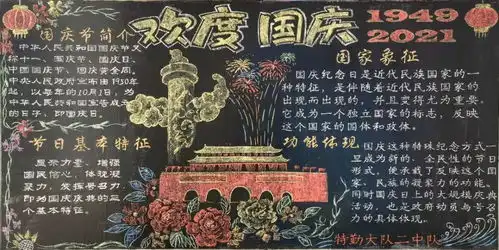 欢度国庆
1949
2021
国庆节简介
中华人民共和国国庆节又
称十一、国庆节、国庆日、
中国国庆节、国庆黄金周。
中华人民政府宣布自1950年
起，以每年的10月1日，为
中华人民共和国宣告成立
的日子，即国庆日。
节日基本特征
显示力量、增强
国民信心，体现凝
聚力，发挥号召力，
即为国庆庆典的三
个基本特征。
国家象征
国庆纪念日是近代民族国家的一
种特征，是伴随着近代民族国家的
出现而出现的，并且变得尤为重要。
它成为一个独立国家的标志，反映
这个国家的国体和政体。
功能体现
国庆这种特殊纪念方式一
旦成为新的、全民性的节日
形式，便承载了反映这个国
家、民族的凝聚力的功能。
同时国庆日上的大规模庆典
活动，也是政府动员与号召
力的具体体现。
特勤大队二中队